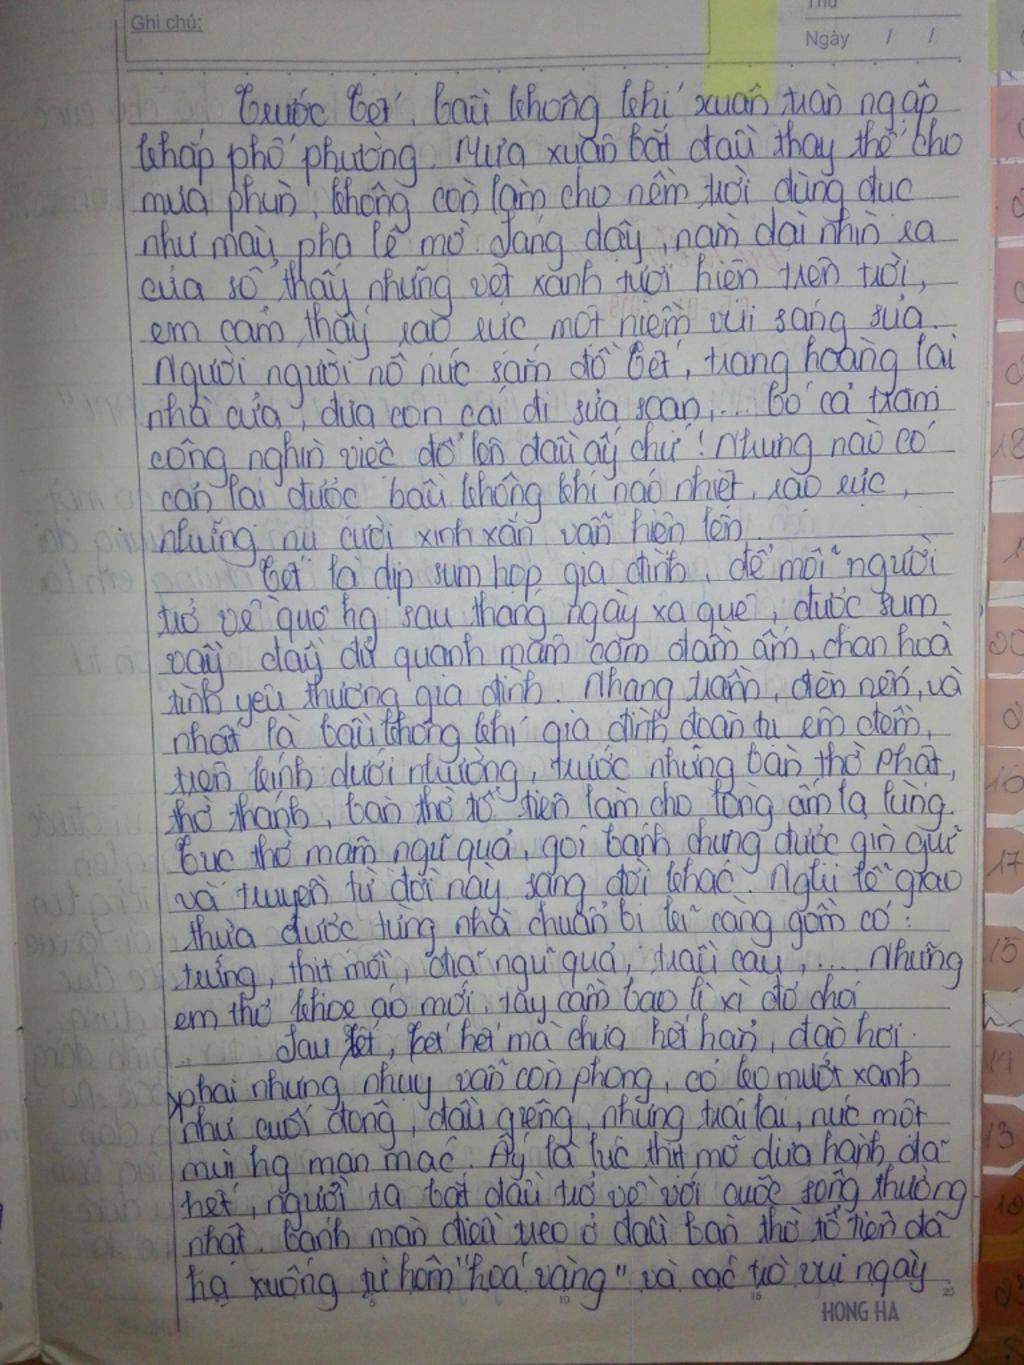 Ghi chú:
Thứ
Ngày / /
Trước Tết, bầu không khí xuân tràn ngập
khắp phố phường. Mưa xuân bắt đầu thay thế cho
mưa phùn, không còn làm cho nền trời đùng đục
như màu pha lê mờ. Sáng dậy, nằm dài nhìn ra
cửa sổ thấy những vệt xanh tươi hiện trên trời,
em cảm thấy rạo rực một niềm vui sáng sủa.
Người người nô nức sắm đồ Tết, trang hoàng lại
nhà cửa, đưa con cái đi sửa soạn,... Có cả trăm
công nghìn việc đổ lên đầu ấy chứ! Nhưng nào có
cản lại được bầu không khí náo nhiệt, rạo rực,
những nụ cười xinh xắn vẫn hiện lên.
Tết là dịp sum họp gia đình, để mỗi người
trở về quê hg sau tháng ngày xa quê, được sum
vầy đầy đủ quanh mâm cơm đầm ấm, chan hoà
tình yêu thương gia đình. Nhang trầm, đèn nến, và
nhất là bầu không khí gia đình đoàn tụ êm đềm,
trên kính dưới nhường, trước những bàn thờ Phật,
thờ thánh, bàn thờ tổ tiên làm cho lòng ấm lạ lùng.
Tục thờ mâm ngũ quả, gói bánh chưng được gìn giữ
và truyền từ đời này sang đời khác. Nghi lễ giao
thừa được từng nhà chuẩn bị kĩ càng gồm có:
trứng, thịt mồi, ngũ quả, trầu cau,.... Những
em thơ khoe áo mới, tay cầm bao lì xì đỏ chói
Sau Tết, Tết hết mà chưa hết hẳn, đào hơi
phai nhưng nhuỵ vẫn còn phong, cỏ ko mướt xanh
như cuối đông, đầu giêng, nhưng trái lại, nức một
mùi hg man mác. Ấy là lúc thịt mỡ dưa hành đã
hết, người ta bắt đầu trở về với cuộc sống thường
nhật. Cánh màn điều treo ở đầu bàn thờ tổ tiên đã
hạ xuống từ hôm "hoá vàng" và các trò vui ngày
5 10 15 20
HONG HA
18
20
16
17
15
14
13